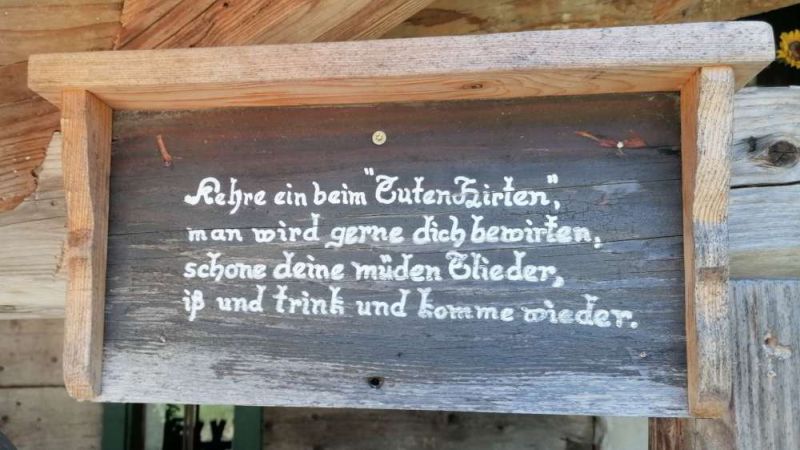 Kehre ein beim "Guten Hirten",
man wird gerne dich bewirten,
schone deine müden Glieder,
iß und trink und komme wieder.